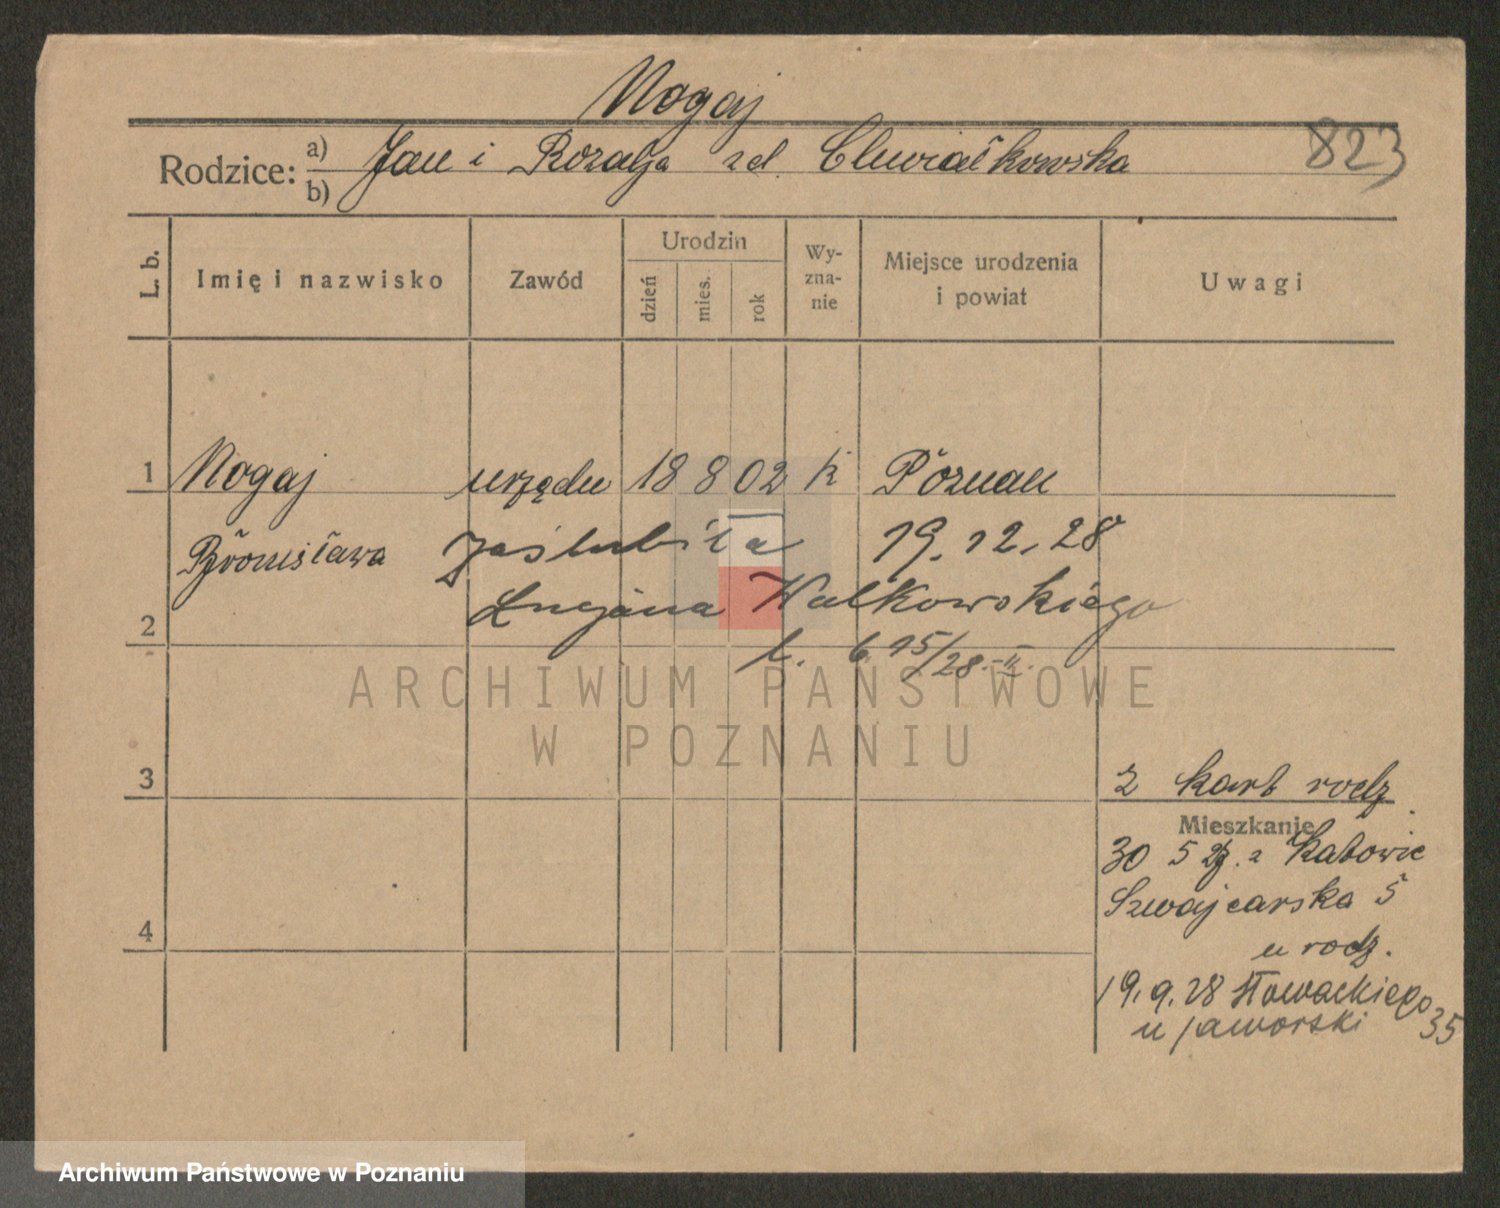 Nogaj
823
Rodzice: a) Jan i Rozalja zd. Chwiałkowska
b)
L. b. Imię i nazwisko Zawód Urodzin dzień mies. rok Wy-zna-nie Miejsce urodzenia i powiat Uwagi
1 Nogaj urzędn 18 8 02 k Poznań
Bronisława zaślubiła 19.12.28
2 Lucjana Walkowskiego
l. b. 15/28.-II.
ARCHIWUM PAŃSTWOWE
W POZNANIU
3 2 kart rodz.
Mieszkanie
30 5 z Katowic
Szwajcarska 5
4 u rodz.
19.9.28 Słowackiego 35
u Jaworski
Archiwum Państwowe w Poznaniu